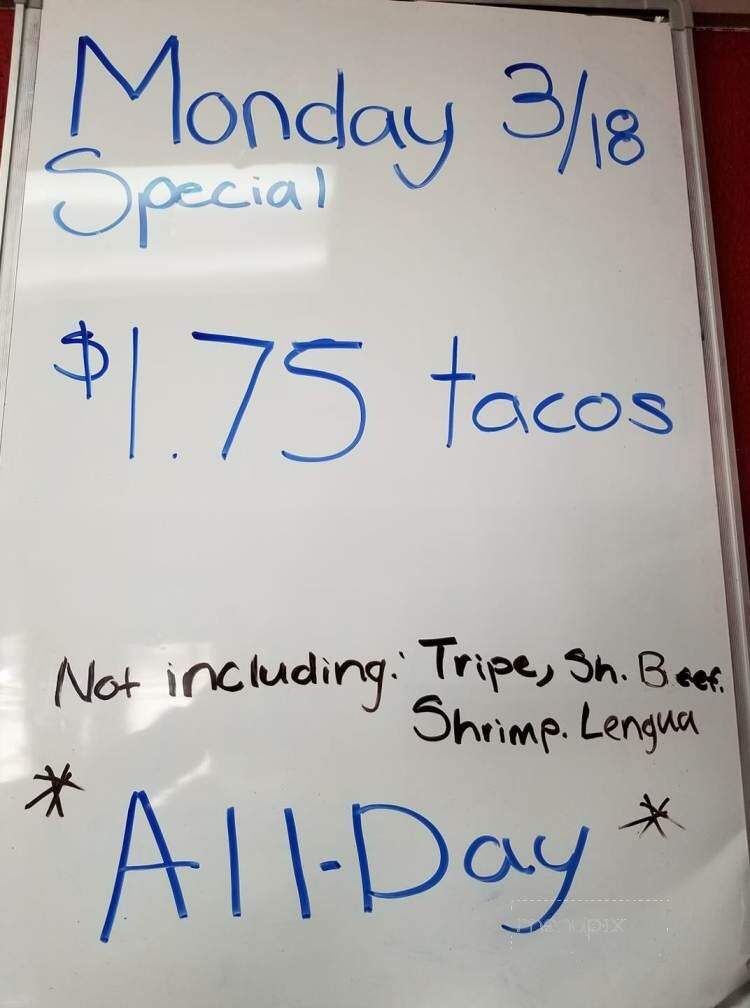 Monday 3/18
Special
$1.75 tacos
Not including: Tripe, Sh. Beef.
Shrimp. Lengua
* All-Day *
menupix